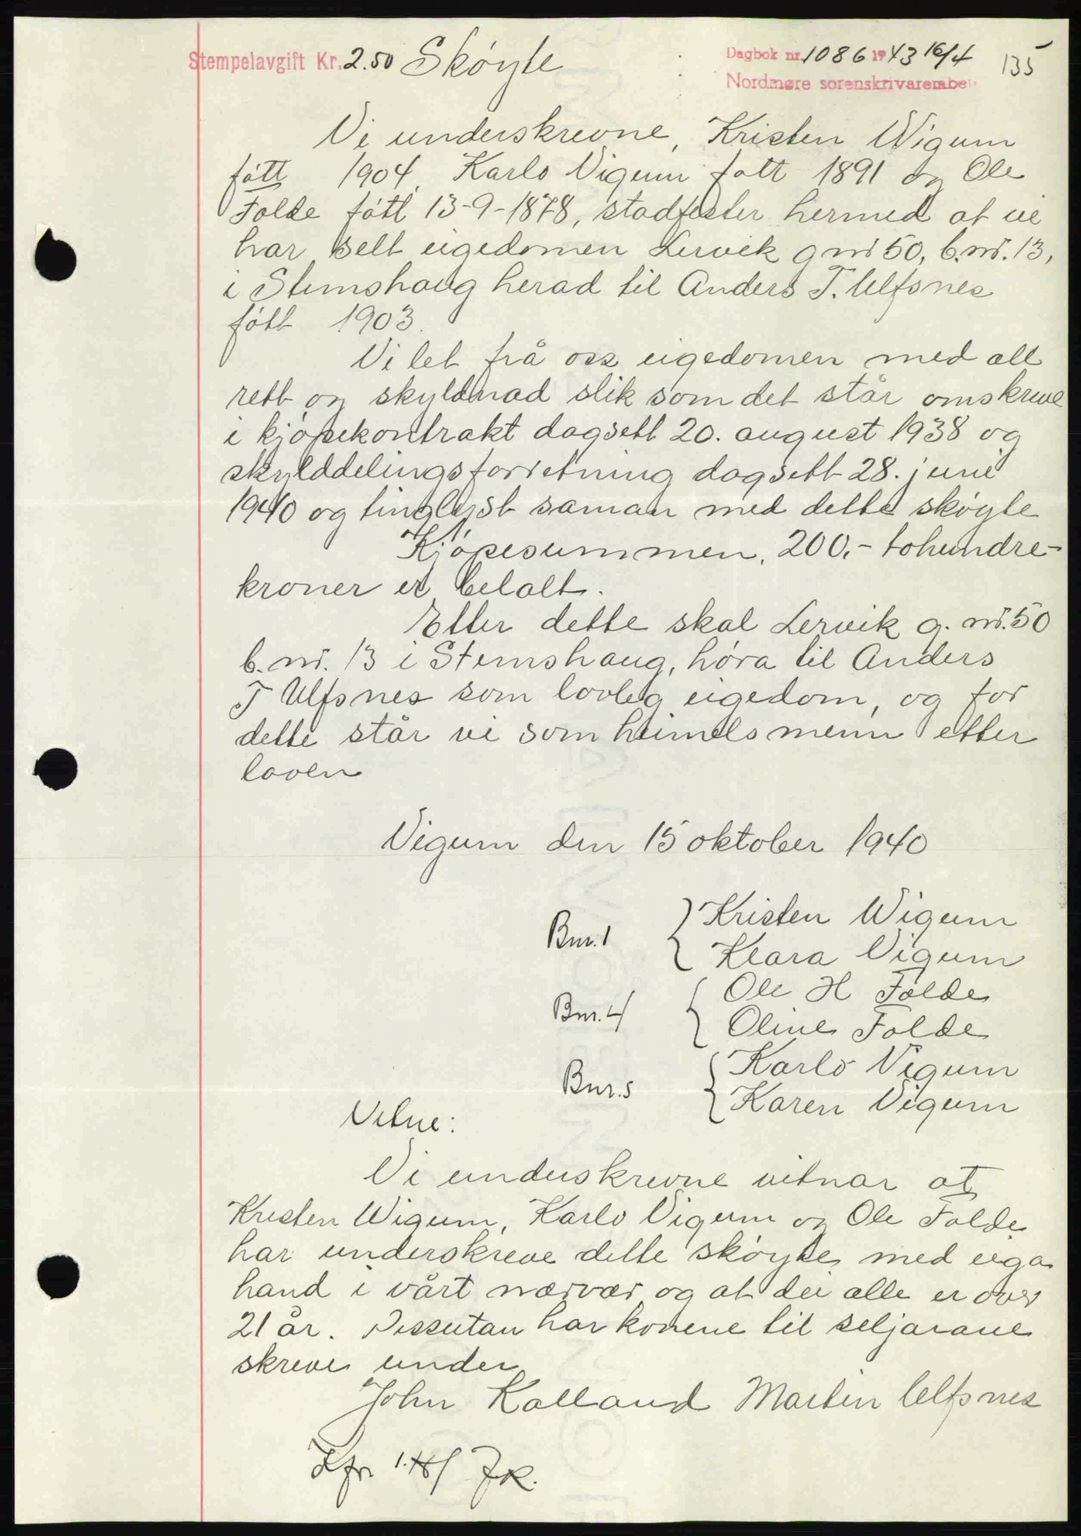 Stempelavgift Kr. 2.50 Skøyte
Dagbok nr. 1086 1943 16/4
Nordmøre sorenskrivarembe
135
Vi underskrevne, Kristen Wigum
fött 1904, Karlo Vigum fött 1891 og Ole
Folde fött 13-9-1878, stadfester hermed at vi
har selt eigedomen Lervik g nr 50, b.nr. 13,
i Stemshaug herad til Anders T. Ulfsnes
fött 1903.
Vi let frå oss eigedomen med all
rett og skyldnad slik som det står omskreve
i kjöpekontrakt dagsett 20. august 1938 og
skylddelingsforretning dagsett 28. juni
1940 og tinglyst saman med dette skøyte
Kjöpesummen, 200,- tohundre-
kroner er betalt.
Etter dette skal Lervik g. nr. 50
b. nr. 13 i Stemshaug, höra til Anders
T Ulfsnes som lovleg eigedom, og for
dette står vi som heimelsmenn etter
loven
Vigum den 15 oktober 1940
Bnr. 1 { Kristen Wigum
Klara Vigum
Bnr. 4 { Ole H Folde
Oline Folde
Bnr. 5 { Karlo Vigum
Karen Vigum
Vitne:
Vi underskrevne vitnar at
Kristen Wigum, Karlo Vigum og Ole Folde
har underskreve dette skøyte med eiga
hand i vårt nærvær og at dei alle er over
21 år. Dessutan har konene til seljarane
skreve under
John Kalland Martin Ulfsnes